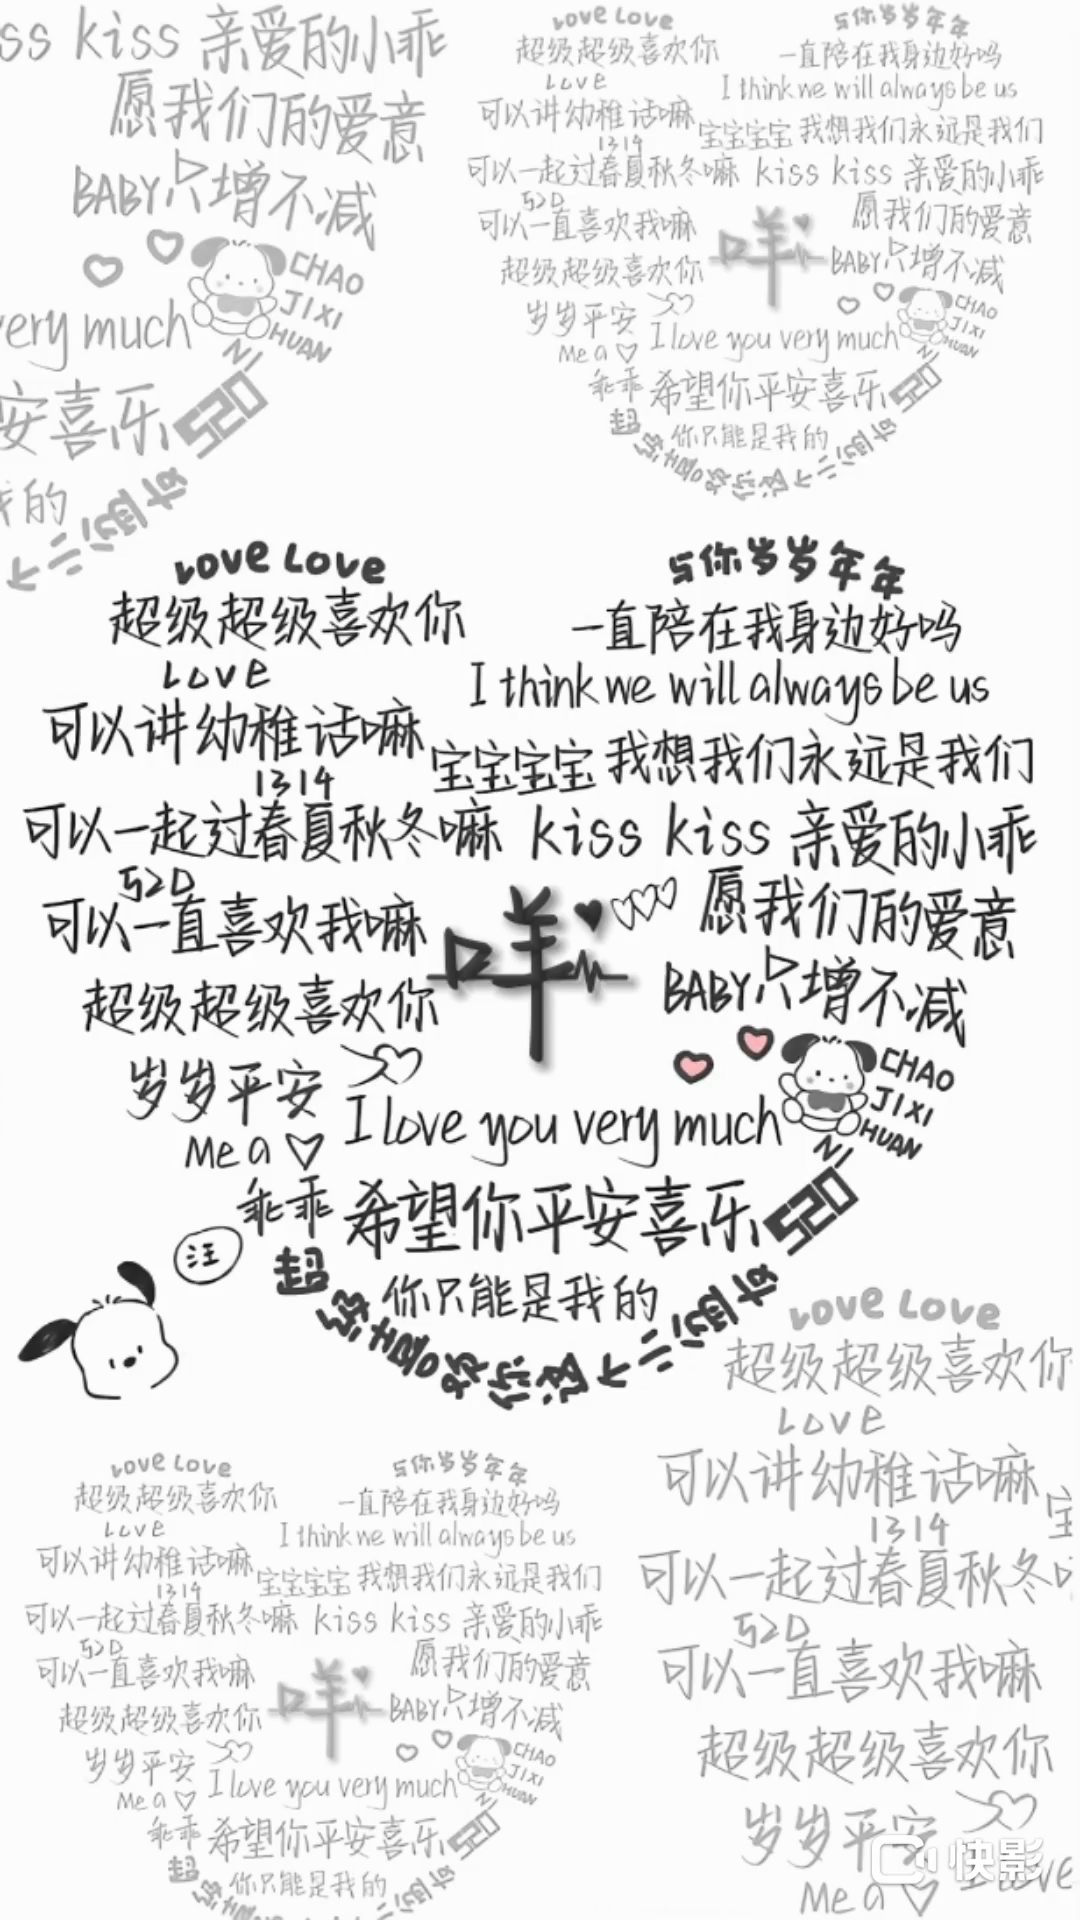 ss kiss 亲爱的小乖
愿我们的爱意
BABY只增不减
CHAO
JIXI
HUAN
NI
very much
安喜乐 520
我的
Love Love
超级超级喜欢你
Love
可以讲幼稚话嘛
1314
可以一起过春夏秋冬嘛
520
可以一直喜欢我嘛
超级超级喜欢你
岁岁平安
Me a
乖乖
与你岁岁年年
一直陪在我身边好吗
I think we will always be us
宝宝宝宝 我想我们永远是我们
kiss kiss 亲爱的小乖
愿我们的爱意
咩
BABY只增不减
CHAO
JIXI
HUAN
NI
I love you very much
希望你平安喜乐 520
你只能是我的
Love Love
与你岁岁年年
超级超级喜欢你
一直陪在我身边好吗
Love
I think we will always be us
可以讲幼稚话嘛
宝宝宝宝 我想我们永远是我们
1314
可以一起过春夏秋冬嘛 kiss kiss 亲爱的小乖
520
愿我们的爱意
可以一直喜欢我嘛
咩
BABY只增不减
超级超级喜欢你
CHAO
JIXI
HUAN
NI
岁岁平安
I love you very much
Me a
乖乖 希望你平安喜乐 520
你只能是我的
超级喜欢你这个
汪
Love Love
超级超级喜欢你
Love
可以讲幼稚话嘛
宝
1314
可以一起过春夏秋冬
520
可以一直喜欢我嘛
超级超级喜欢你
岁岁平安
I love
Me a
Love Love
与你岁岁年年
超级超级喜欢你
一直陪在我身边好吗
Love
I think we will always be us
可以讲幼稚话嘛
宝宝宝宝 我想我们永远是我们
1314
可以一起过春夏秋冬嘛 kiss kiss 亲爱的小乖
520
愿我们的爱意
可以一直喜欢我嘛
咩
BABY只增不减
超级超级喜欢你
CHAO
JIXI
HUAN
NI
岁岁平安
I love you very much
Me a
乖乖 希望你平安喜乐 520
你只能是我的
快影